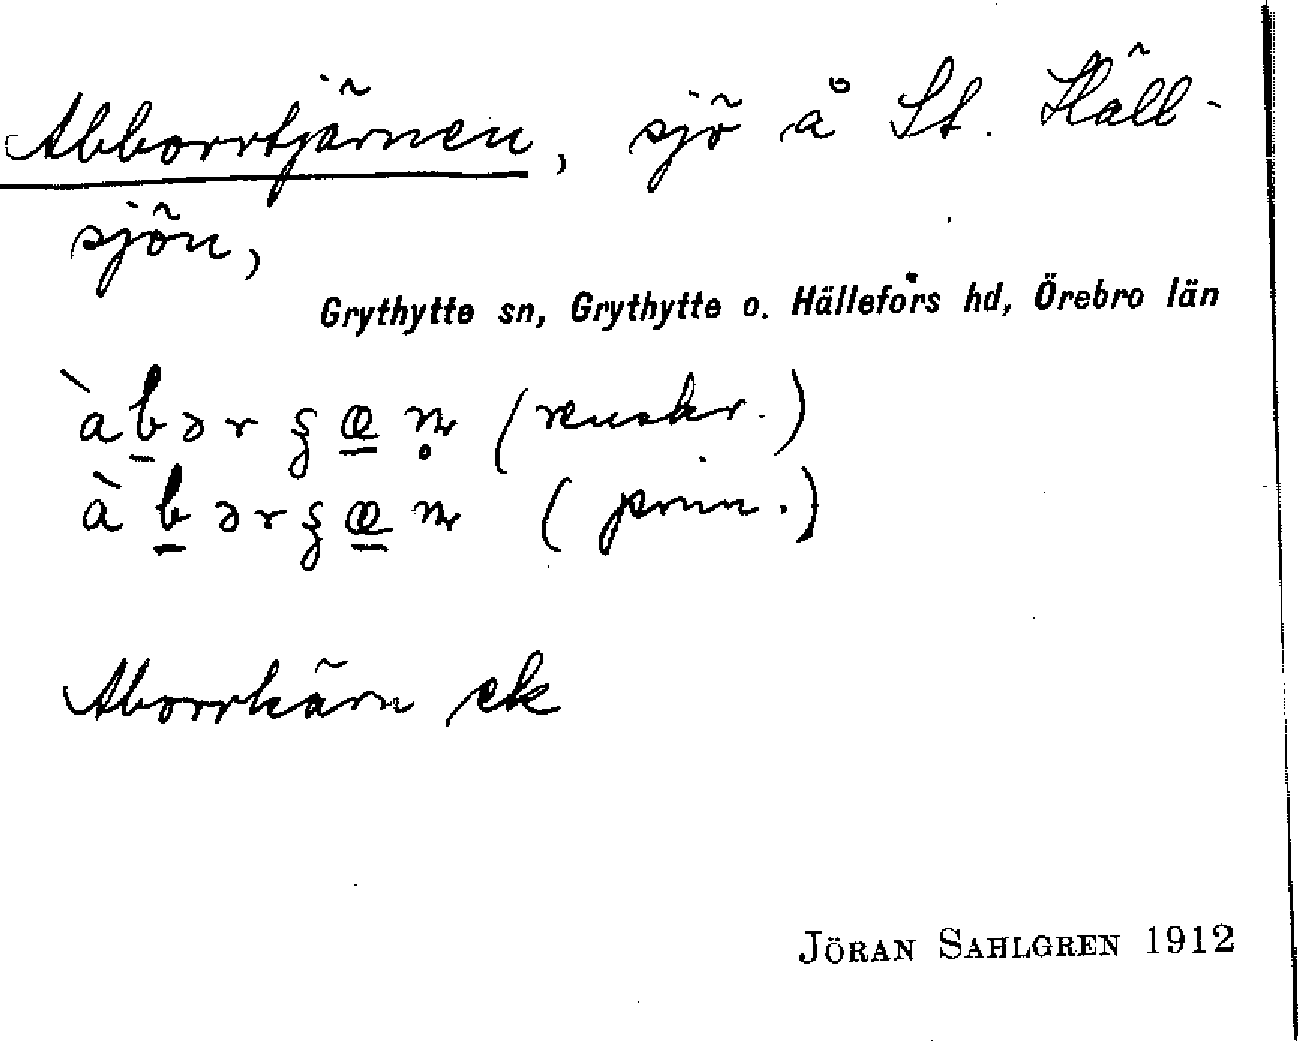 Abborrtjärnen, sjö å St. Häll-
sjön,
Grythytte sn, Grythytte o. Hällefors hd, Örebro län
(renskr.)
(prim.)
Aborrkärn ek
JÖRAN SAHLGREN 1912